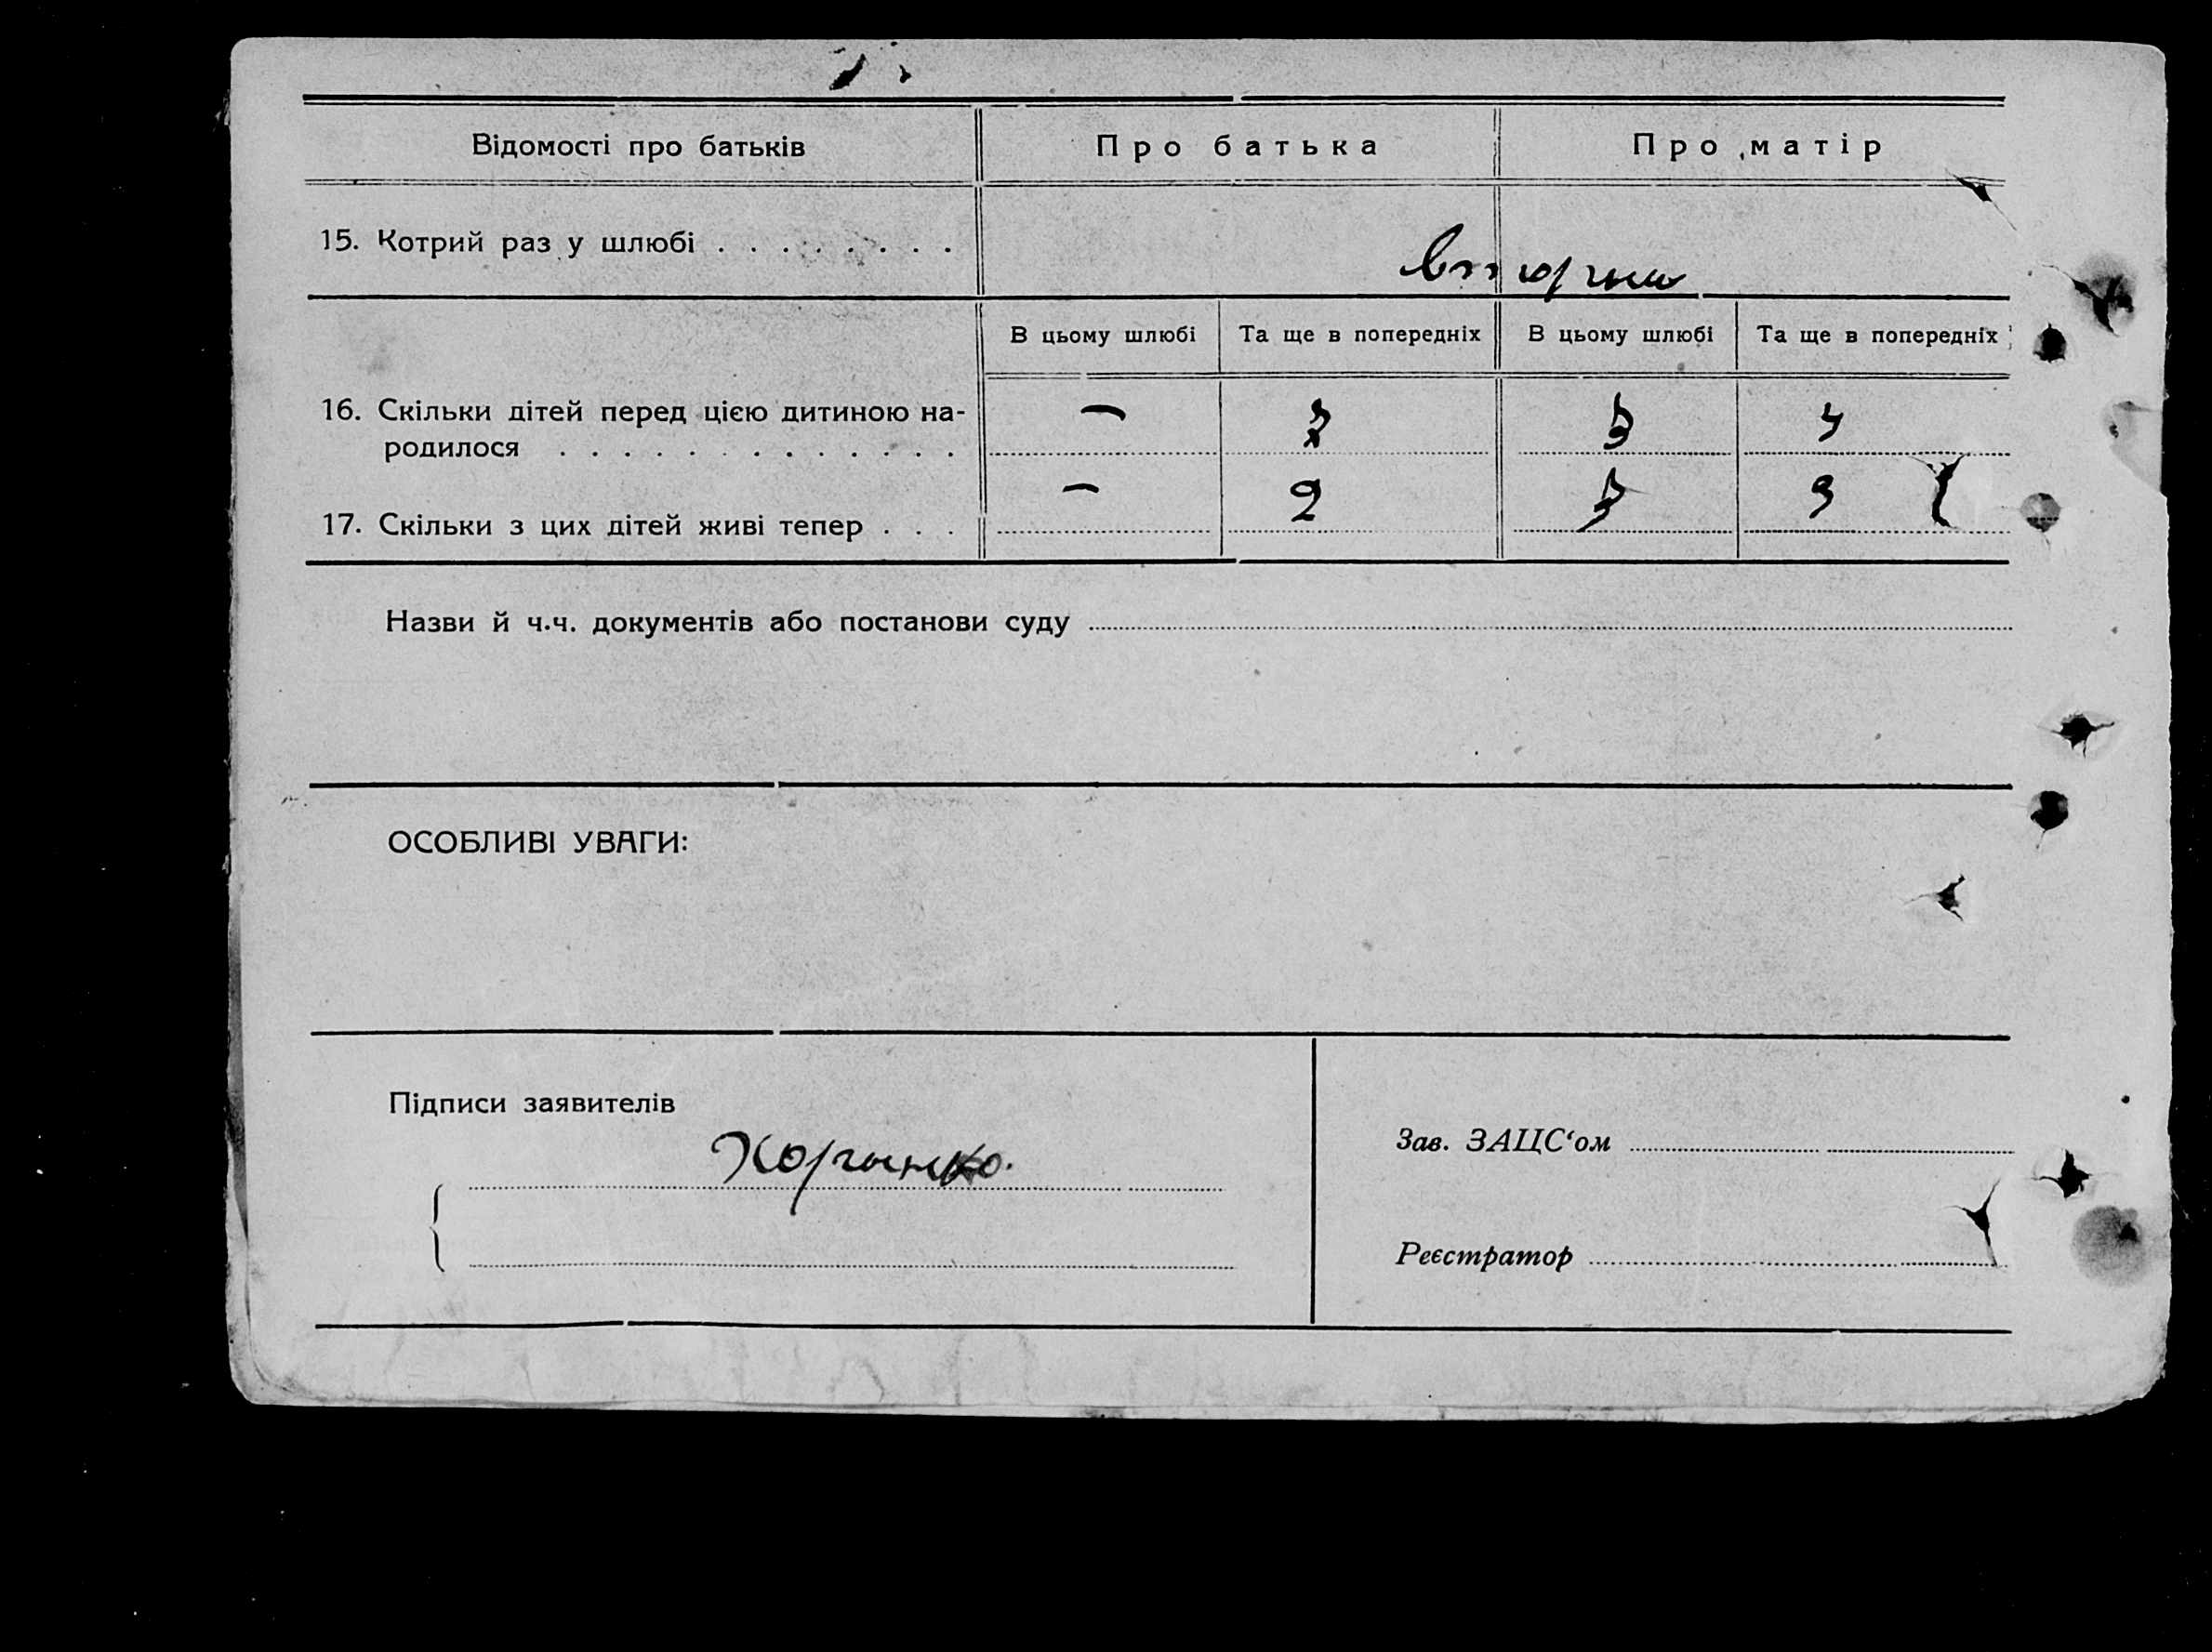 Відомості про батьків
Про батька
Про матір
15. Котрий раз у шлюбі . . . . . . . .
В цьому шлюбі
Та ще в попередніх
В цьому шлюбі
Та ще в попередніх
16. Скільки дітей перед цією дитиною на-
родилося . . . . . . . . . . . . .
—
17. Скільки з цих дітей живі тепер . . .
— 2
Назви й ч.ч. документів або постанови суду
ОСОБЛИВІ УВАГИ:
Підписи заявителів
Зав. ЗАЦС‘ом
Реєстратор